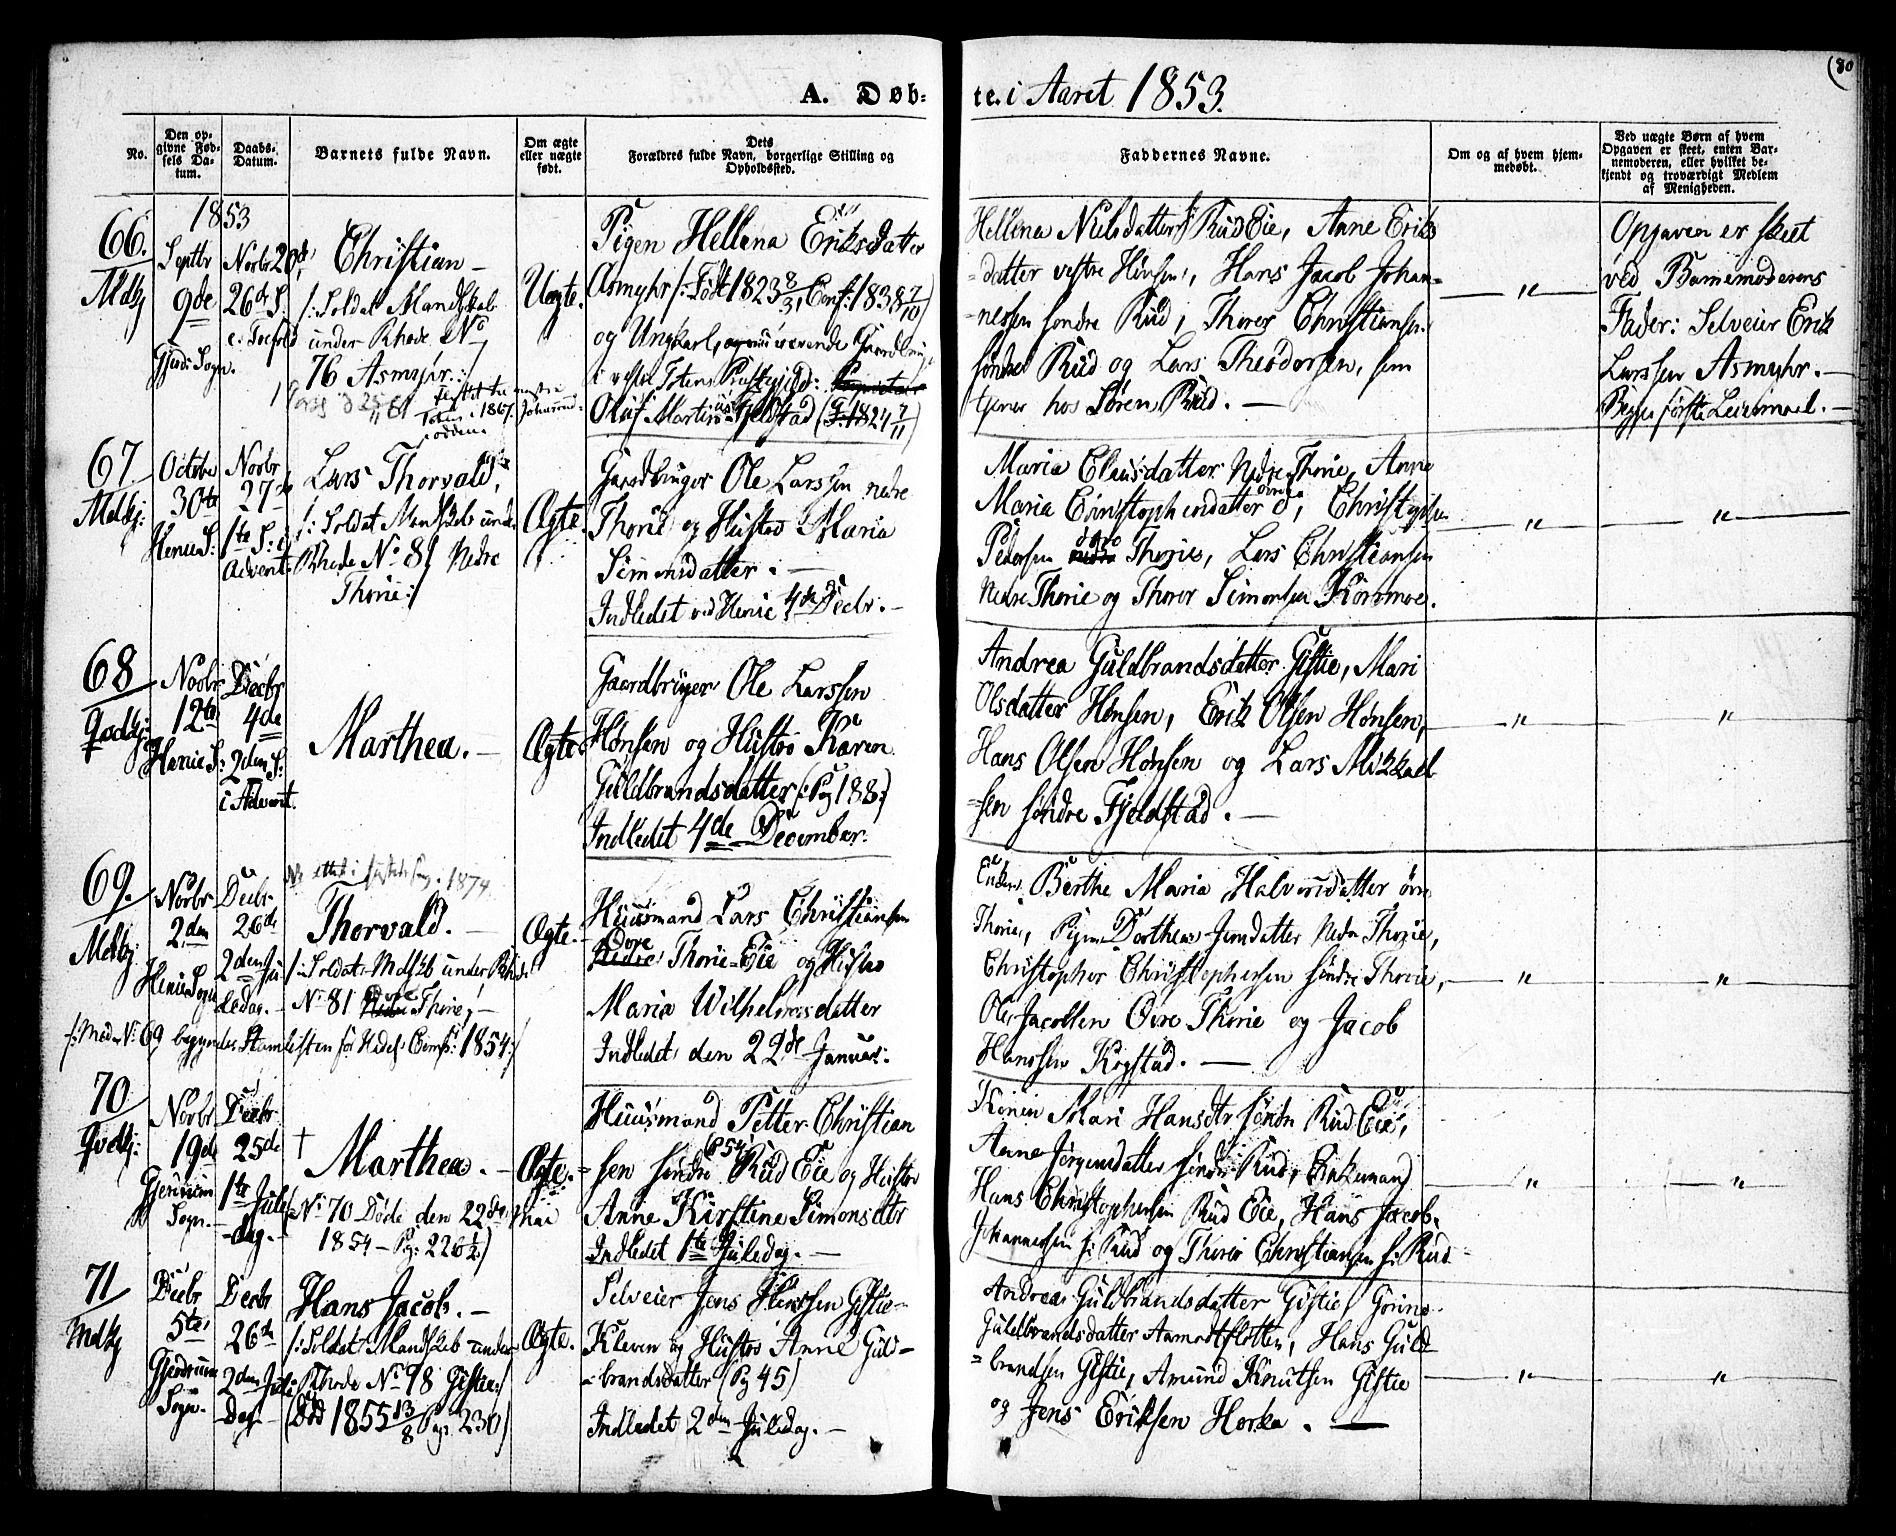 (80
A. Døb-
te. i Aaret 1853.
No.
Den op-
givne Fød-
sels Da-
tum.
Daabs-
Datum.
Barnets fulde Navn.
Om ægte
eller uægte
født.
Dets
Forældres fulde Navn, borgerlige Stilling og
Opholdssted.
Faddernes Navne.
Om og af hvem hjem-
medøbt.
Ved uægte Børn af hvem
Opgaven er skeet, enten Bar-
nemoderen, eller hvilket be-
kjendt og troværdigt Medlem
af Menigheden.
1853
66.
Mdkj
Septbr
9de
Gjerd: Sogn.
Novbr 20de
26de S.
e. Trefold
Christian
/: Soldat Mandskab
under Rhode No
76 Asmyhr :/
Uægte.
Pigen Hellena Eriksdatter
Asmyhr /: Født 1823 8/3, Conf: 1838 7/10)
og Ungkarl, Gaardbruger
i vestre Totens Præstegjeld:
Oluf Martinus Fjeldstad (F. 1824 7/11)
Hellena Nielsdatter Rud Eie, Anne Eriks
datter vestre Hønsen, Hans Jacob Johan-
nessen søndre Rud, Thorer Christiansen
søndre Rud og Lars Theodorsen, som
tjener hos Søren Rud.
"
Opgaven er skeet
ved Barnemoderens
Fader: Selveier Erik
Larssen Asmyhr.
Begges første Leiermaal.
67
Mdkj:
Octobr
30te
Henie S:
Novbr
27de
1te S: i
Advent.
Lars Thorvald,
/: Soldat Mandskab under
Rhode No 81 Nedre
Thorie :/
Ægte
Gaardbruger Ole Larssen nedre
Thorie og Hustro Maria
Simensdatter.
Indledet ved Henie 4de Decbr.
Maria Elensdatter Nedre Thorie, Anne
Maria Christophersdatter d, Christopher
Pedersen Thorie, Lars Christiansen
Nedre Thorie og Thorer Simonsen Kommoe.
"
"
68
Qvdkj:
Novbr
12te
Henie S:
Decbr
4de
2den S:
i Advent.
Marthea.
Ægte
Gaardbruger Ole Larssen
Hønsen og Hustro Karen
Guldbrandsdatter (Pg 188.)
Indledet 4de December.
Andrea Guldbrandsdatter Gistie, Mari
Olsdatter Hønsen, Erik Olsen Hønsen,
Hans Olsen Hønsen og Lars Mikkel
sen søndre Fjeldstad.
"
"
69.
Mdkj
Novbr
2den
Henie Sogn
Decbr.
26de
2den Ju
ledag.
1874.
Thorvald.
/: Soldat Mdskb under Rhode
No 81 Thorie,
/: Med No 69 begynder Stamlisten for Conf: 1854:/
Ægte.
Huusmand Lars Christiansen
Øvre Thorie-Eie og Hustro
Maria Wilhelmsdatter
Indledet den 22de Januar.
Enken Berthe Maria Halvorsdatter øvre
Thorie, Pigen Dorthea Jensdatter Nedre Thorie,
Christopher Christophersen søndre Thorie,
Ole Jacobsen Øvre Thorie og Jacob
Hanssen Kogstad.
"
"
70
Qvdkj:
Novbr
19de
Gjerdrum
Sogn.
Decbr
25de
1te Jule
dag.
† Marthea.
No 70 Døde den 22de Mai
1854 - Pg: 226 1/2)
Ægte.
Huusmand Petter Christian
sen søndre Rud Eie og Hustro
Anne Kirstine Simonsdtr
Indledet 1te Juledag.
Konen Mari Hansdtr søndre Rud Eie,
Anne Jørgensdatter søndre Rud, Enkemand
Hans Christophersen Rud Eie, Hans Jacob
Johannessen s: Rud og Thorer Christiansen s: Rud
"
"
71
Mdkj
Decbr
5te
Gjerdrum
Sogn.
Decbr
26de
2den Jule
Dag
Hans Jacob.
/: Soldat Mandskab under
Rhode No 78 Gistie:/
(Død 1855 13/8 Pag. 230)
Ægte.
Selveier Jens Hanssen Gistie-
Kleven og Hustro Anne Guld-
brandsdatter (Pg 45)
Indledet 2den Juledag.
Andrea Guldbrandsdatter Gistie, Gorine
Guldbrandsdatter Aamodtflotten, Hans Guld
brandsen Gistie, Amund Knutsen Gistie
og Jens Eriksen Horka.
"
"